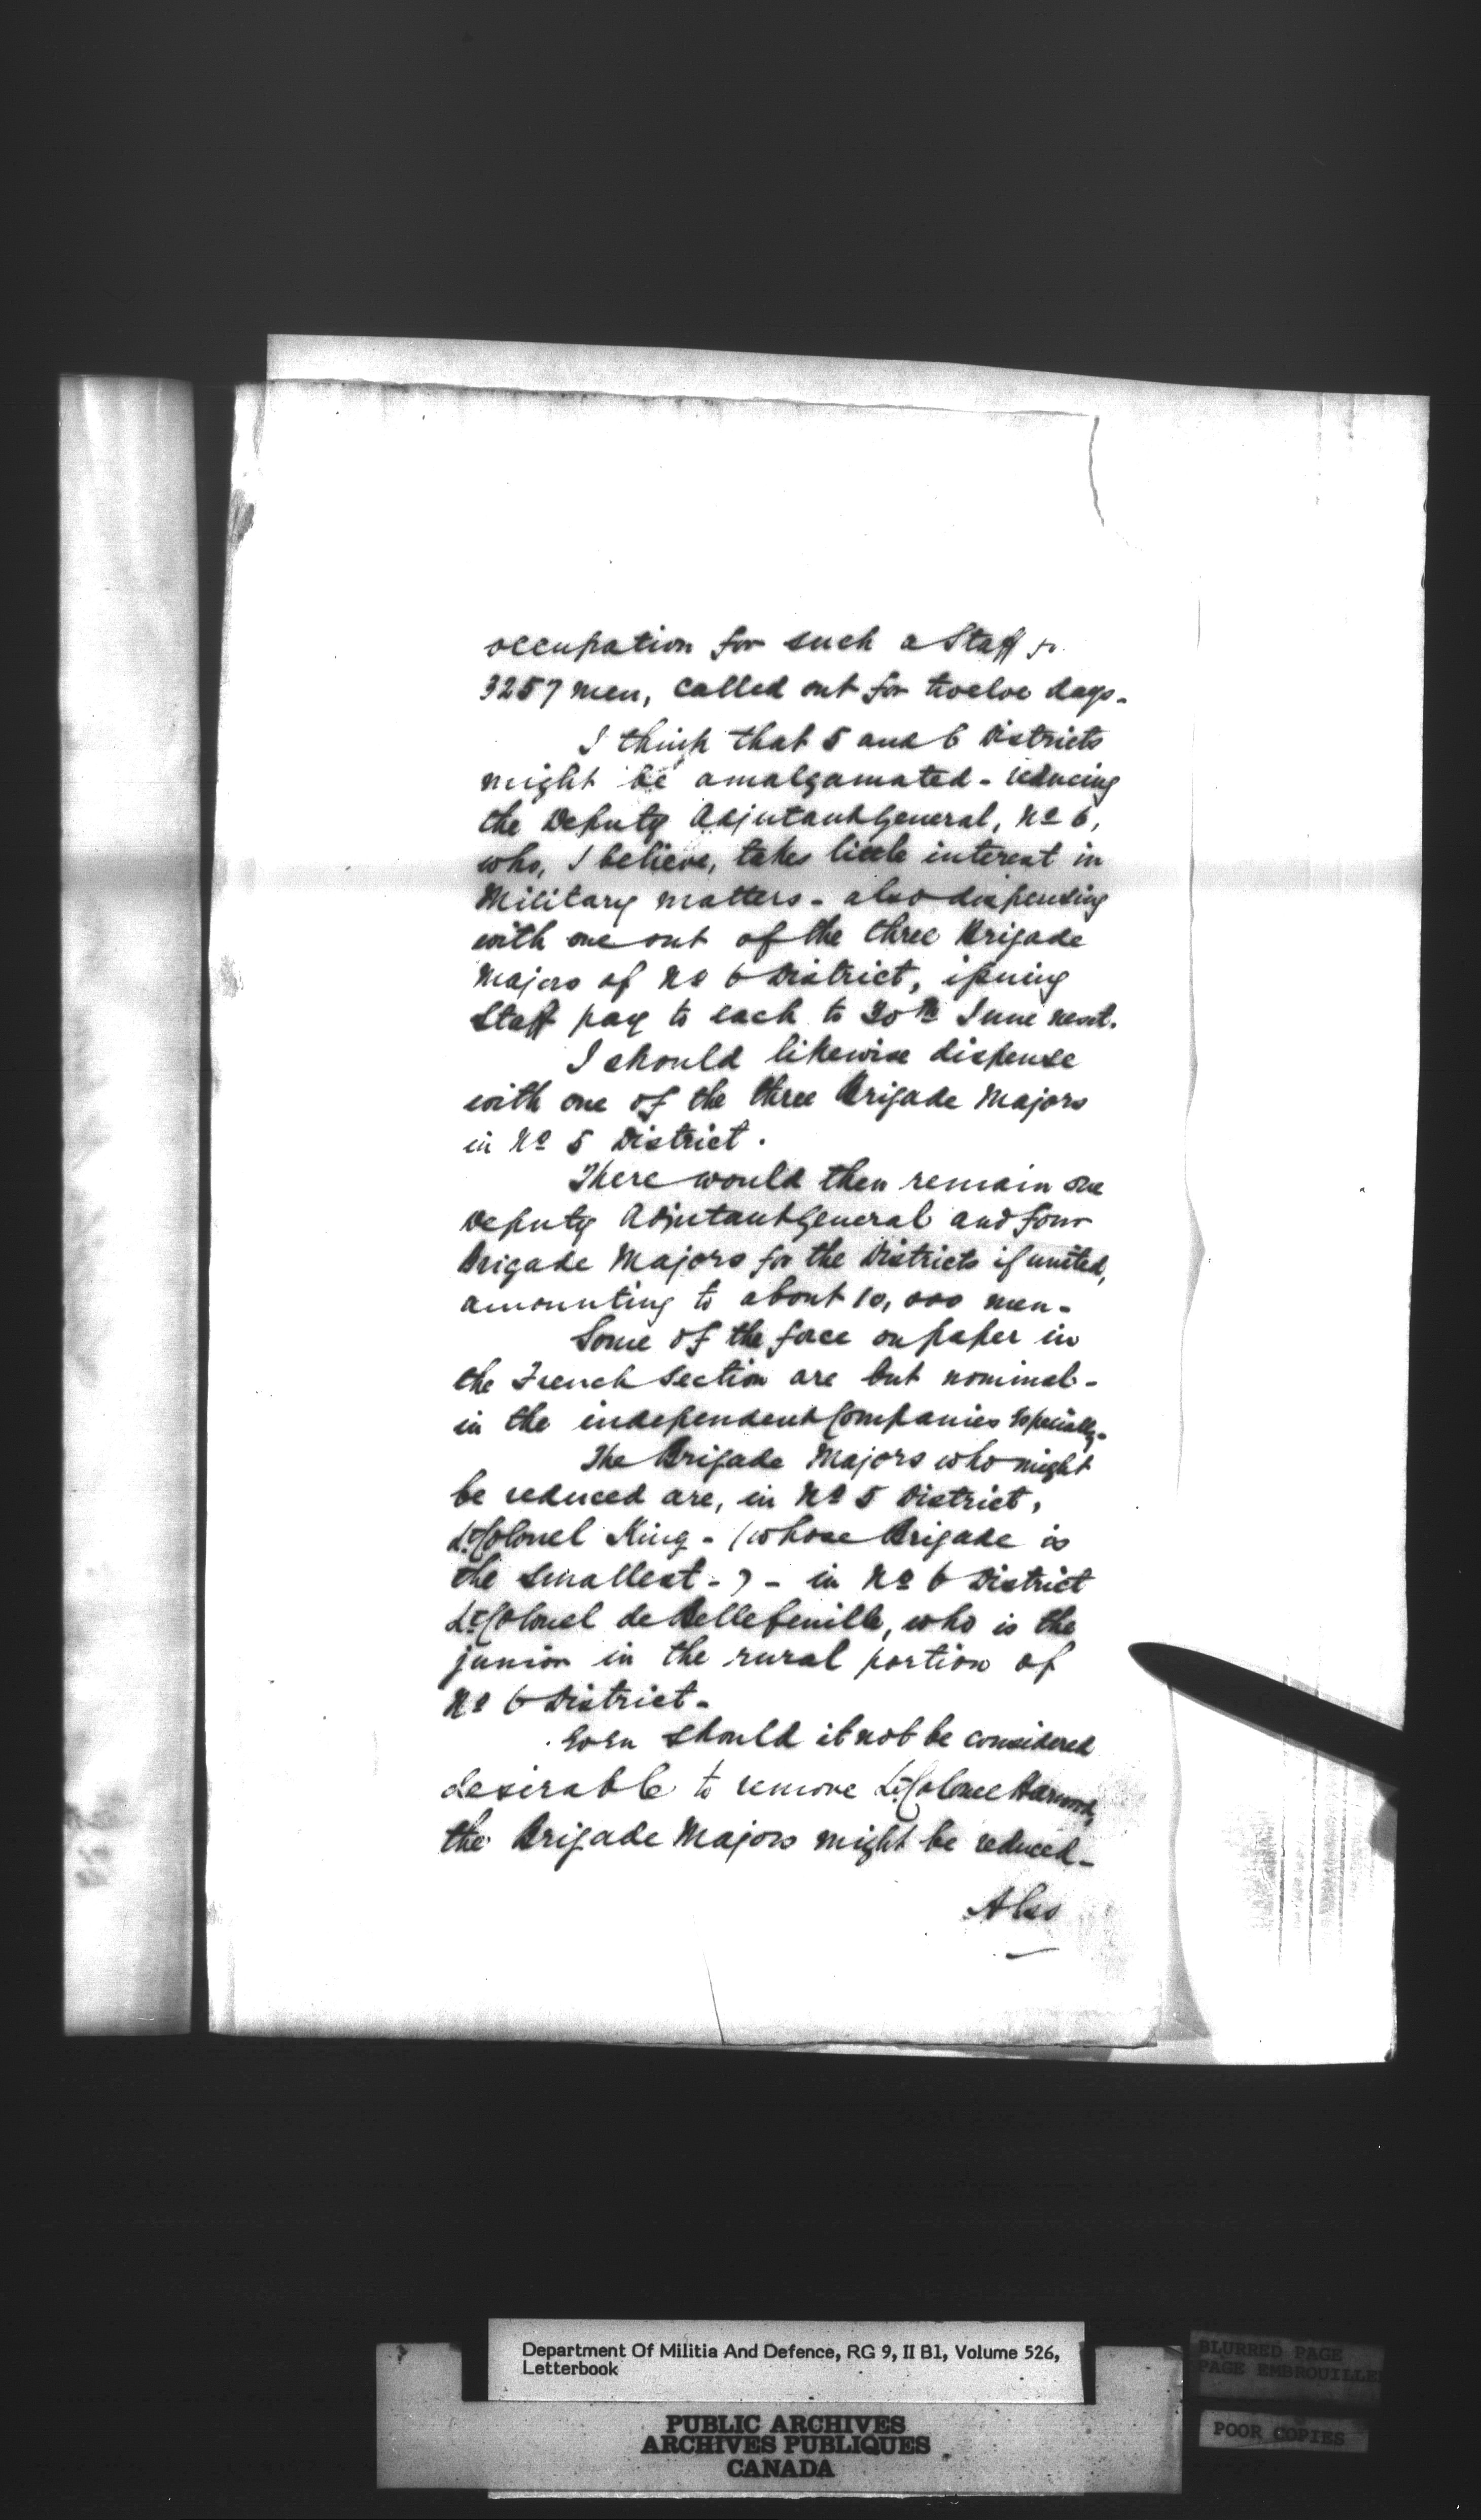 occupation for such a Staff &
3257 men, called out for twelve days.
I think that 5 and 6 Districts
might be amalgamated - reducing
the Deputy Adjutant General, No 6,
who, I believe, takes little interest in
Military matters - also dispensing
with one out of the three Brigade
Majors of No 6 District, issuing
Staff pay to each to 30th June next.
I should likewise dispense
with one of the three Brigade Majors
in No 5 District.
There would then remain one
Deputy Adjutant General and four
Brigade Majors for the Districts if united,
amounting to about 10,000 men -
Some of the force on paper in
the French Section are but nominal -
in the independent Companies especially -
The Brigade Majors who might
be reduced are, in No 5 District,
Lt. Colonel King - (whose Brigade is
the smallest -) - in No 6 District
Lt. Colonel de Bellefeuille, who is the
junior in the rural portion of
No 6 District -
Even should it not be considered
desirable to remove Lt. Colonel Harwood,
the Brigade Majors might be reduced -
Also
Department Of Militia And Defence, RG 9, II B1, Volume 526,
Letterbook
PUBLIC ARCHIVES
ARCHIVES PUBLIQUES
CANADA
BLURRED PAGE
PAGE EMBROUILLE
POOR COPIES